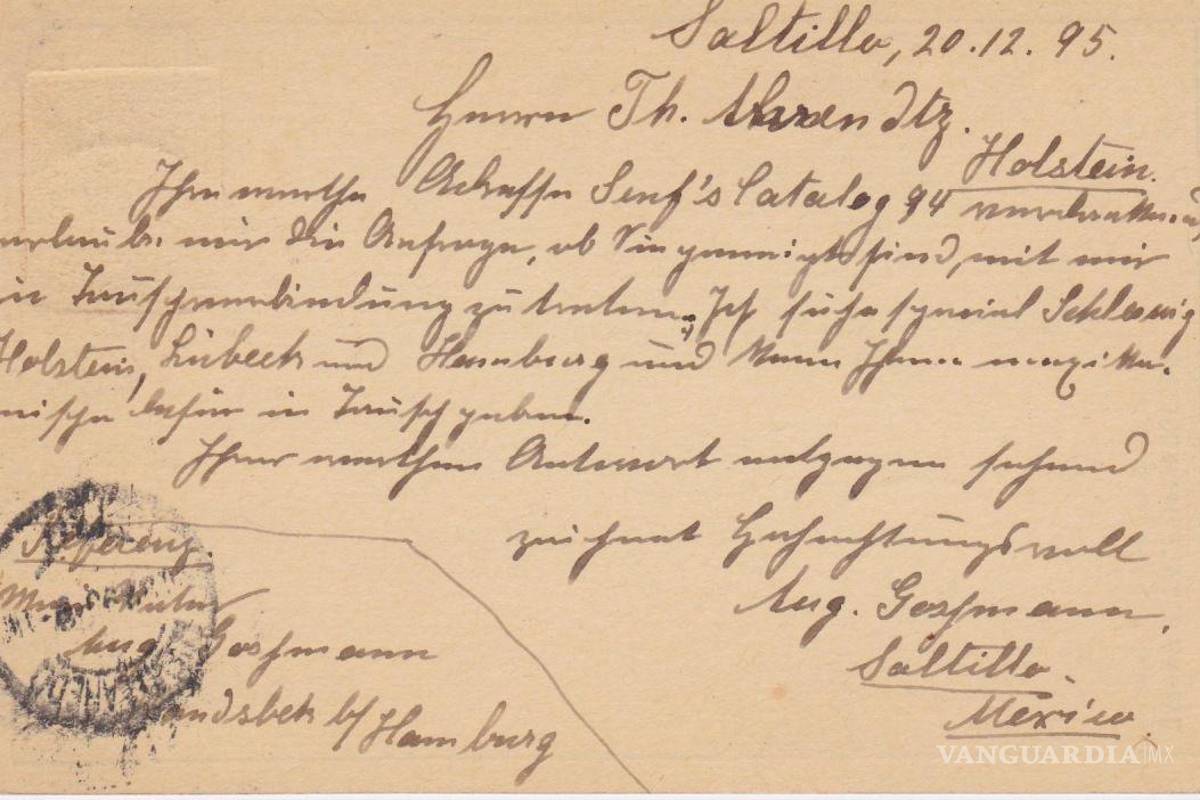 Saltillo, 20.12.95.
Herrn Th. Ahrendtz.
Holstein.
Ihre werthe Adresse Senf's Catalog 94
erlaube mir die Anfrage, ob Sie geneigt sind, mit mir
in Tauschverbindung zu treten. Ich suche special Schleswig
Holstein, Lübeck und Hamburg und kann Ihnen mexika-
nische dafür in Tausch geben.
Ihrer werthen Antwort entgegen sehend
zeichnet Hochachtungsvoll
Aug. Goshmann,
Saltillo.
Mexico.
Referenz.
Aug. Goshmann
b/Hamburg
VANGUARDIA|MX